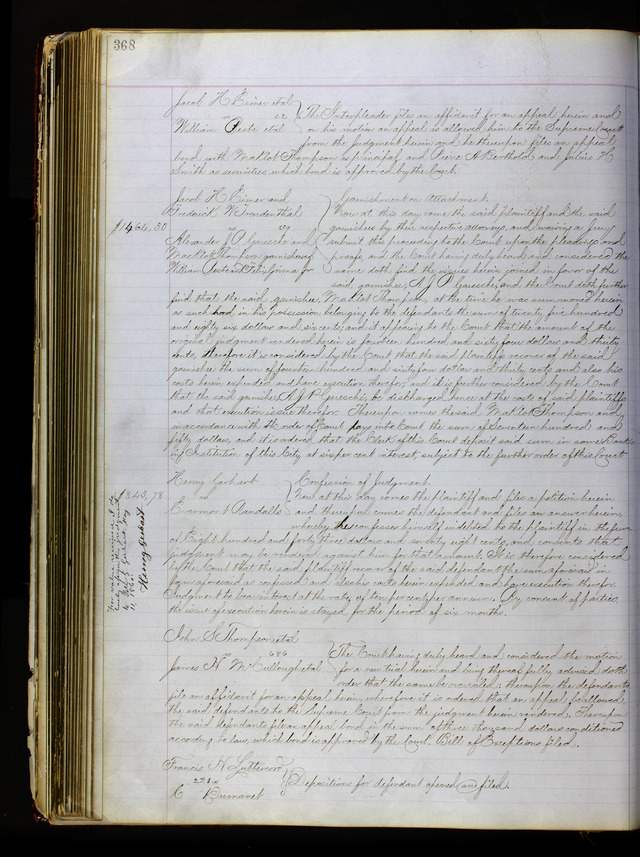 368
Jacob H Eimer etal
vs 52
William Peste etal
The Interpleader files an affidavit for an appeal herein and
on his motion an appeal is allowed him to the Supreme Court
from the judgment herein and he thereupon files an appeal
bond with Matlot Thompson as principal and Pierre A Berthold and Julius H
Smith as securities which bond is approved by the Court.
Jacob H Eimer and
Frederick W Fraudenthal
$1464,30
vs
Alexander J P Garesche and
Matlot Thompson garnishees of
William
Garnishment on Attachment.
Now at this day come the said plaintiff and the said
garnishees by their respective attorneys, and waiving a jury
submit this proceeding to the Court upon the pleadings and
proofs, and the Court having duly heard and considered the
same doth find the issues herein joined in favor of the
said garnishee, A J P Garesche, and the Court doth further
find that the said garnishee, Matlot Thompson, at the time he was summoned herein
as such had in his possession belonging to the defendants the sum of twenty five hundred
and eighty six dollars and six cents, and it appearing to the Court that the amount of the
original judgment rendered herein is fourteen hundred and sixty four dollars and thirty
cents, therefore it is considered by the Court that the said plaintiffs recover of the said
garnishee the sum of fourteen hundred and sixty four dollars and thirty cents and also his
costs herein expended and have execution therefor, and it is further considered by the Court
that the said garnishee A J P Garesche, be discharged hence at the costs of said plaintiffs
and that execution issue therefor. Thereupon comes the said Matlot Thompson and
in accordance with the order of Court pays into Court the sum of Seventeen hundred and
fifty dollars, and it is ordered that the Clerk of this Court deposit said sum in some Bank
of Institution of this City at six per cent interest, subject to the further order of this Court
Henry Gerhart
$843,78
vs
Evermont Randalls
Confession of Judgment.
Now at this day comes the plaintiff and files a petition herein
and thereupon comes the defendant and files an answer herein,
whereby he confesses himself indebted to the plaintiff in the sum
of Eight hundred and forty three dollars and seventy eight cents, and consents that
judgment may be rendered against him for that amount. It is therefore considered
by the Court that the said plaintiff recover of the said defendant the sum aforesaid in
form aforesaid as confessed and also his costs herein expended and have execution therefor.
Judgment to bear interest at the rate of ten per cent per annum. By consent of parties
the issue of execution herein is stayed for the period of six months.
Henry Gerhart
John S Thompson etal
vs 686
James H McCullough etal
The Court having duly heard and considered the motion
for a new trial herein and being thereof fully advised doth
order that the same be overruled; thereupon the defendants
file an affidavit for an appeal herein, wherefore it is ordered that an appeal be allowed
the said defendants to the Supreme Court from the judgment herein rendered. Thereupon
the said defendants file an appeal bond in the sum of three thousand dollars conditioned
according to law, which bond is approved by the Court. Bill of Exceptions filed.
Francis H
221
C Bumanet
Depositions for defendant opened and filed.